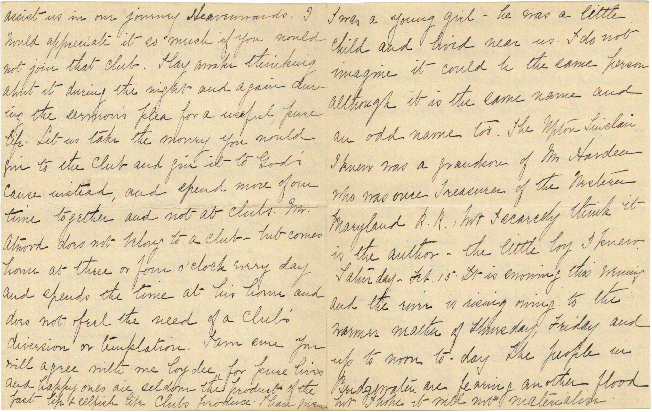 assist us in our journey Heavenwards. I
would appreciate it so much if you would
not join that club. I lay awake thinking
about it during the night and again dur-
ing the sermon's plea for a useful pure
life. Let us take the money you would
give to the club and give it to God's
cause instead, and spend more of our
time together and not at clubs. Mr.
Atwood does not belong to a club - but comes
home at three or four o'clock every day
and spends the time at his home and
does not feel the need of a club's
diversion or temptation. I am sure you
will agree with me for pure lives
and happy ones are seldom the product of the
fast life & selfish life clubs produce. Please
I was a young girl - he was a little
child and lived near us. I do not
imagine it could be the same person
although it is the same name and
an odd name too. The Upton Sinclair
I knew was a grandson of Mr Harden
who was once Treasurer of the Western
Maryland R.R., but I scarcely think it
is the author - the little boy I knew.
Saturday - Feb. 15. It is snowing this evening
and the river is rising owing to the
warmer weather of Thursday, Friday and
up to noon to-day. The people in
Bridgewater are fearing another flood
but I hope it will not materialize.